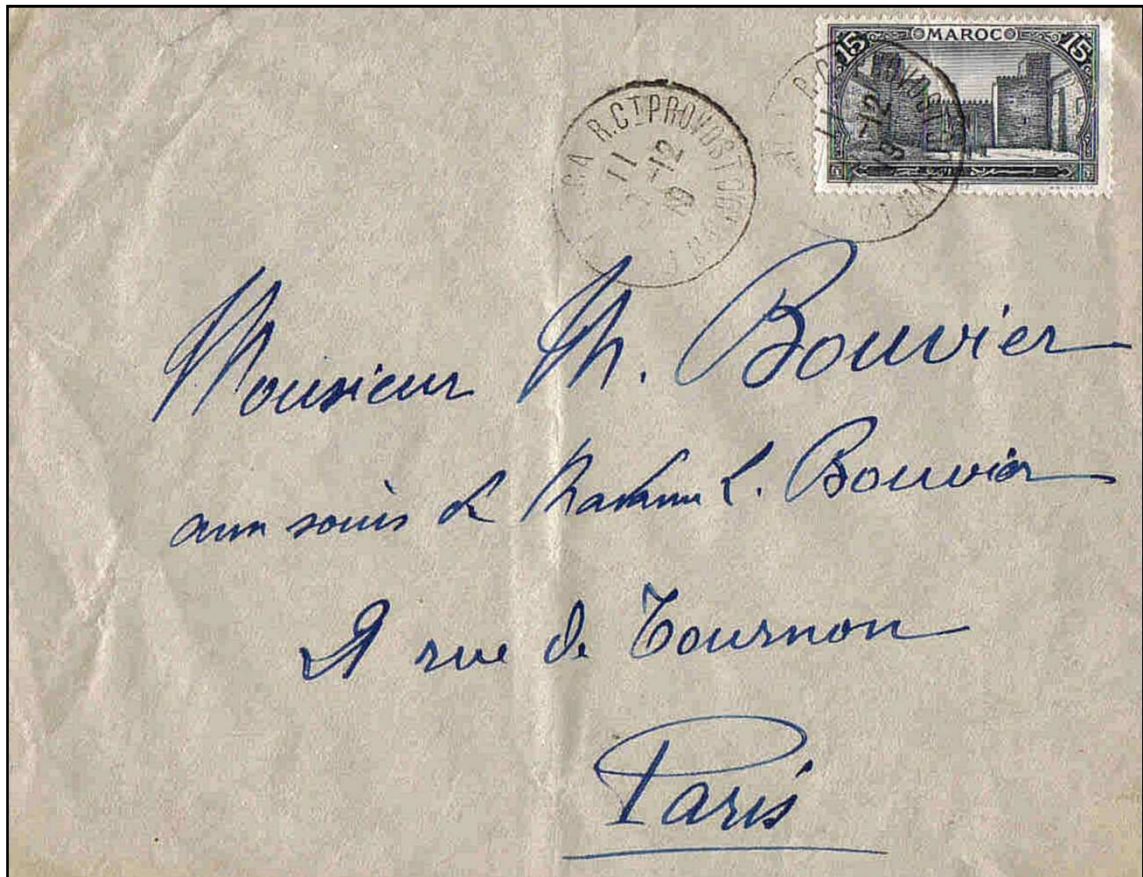 15 MAROC 15
CA R. Ct PROVOST
11
-12
19
Monsieur M. Bouvier
aux soins de Madame L. Bouvier
rue de Tournon
Paris